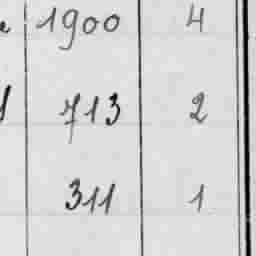 1900 4
713 2
311 1